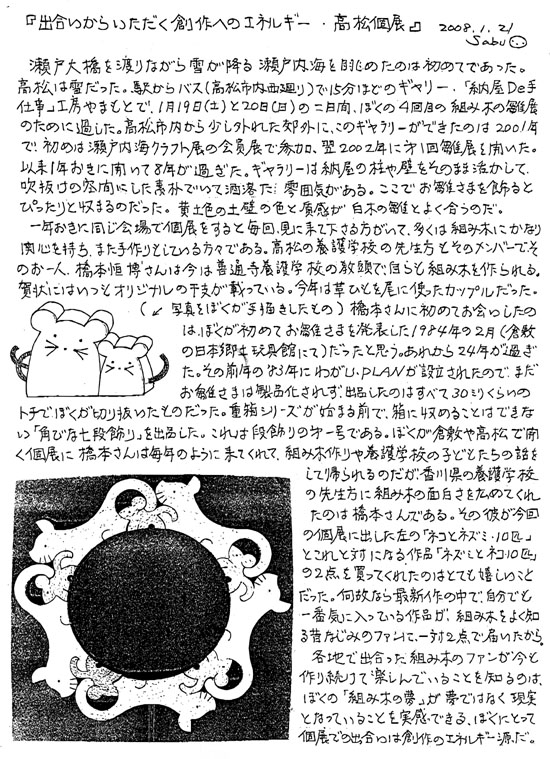 『出合いからいただく創作へのエネルギー・高松個展』
2008.1.21
Sabu
瀬戸大橋を渡りながら雪が降る瀬戸内海を眺めたのは初めてであった。
高松は雪だった。駅からバス(高松市内西廻り)で15分ほどのギャリー・「納屋De手
仕事」工房やまもとで、1月19日(土)と20日(日)の二日間、ぼくの4回目の組み木の雛展
のために過した。高松市内から少し外れた郊外に、このギャラリーができたのは2001年
で、初めは瀬戸内海クラフト展の会員展で参加、翌2002年に第1回雛展を開いた。
以来1年おきに開いて8年が過ぎた。ギャラリーは納屋の柱や壁をそのまま活かして、
吹抜けの空間にした素朴でいて洒落た雰囲気がある。ここでお雛さまを飾ると
ぴったりと収まるのだった。黄土色の土壁の色と質感が白木の雛とよく合うのだ。
一年おきに同じ会場で個展をすると毎回、見に来て下さる方がいて、多くは組み木にかなり
関心を持ち、また手作りをしている方々である。高松の養護学校の先生方とそのメンバーでそ
のお一人、橋本恒博さんは今は善通寺養護学校の教頭で、自らも組み木を作られる。
賀状にはいつもオリジナルの干支が載っている。今年は革ひもを尾に使ったカップルだった。
(↙写真をぼくが手描きしたもの) 橋本さんに初めてお会いしたの
は、ぼくが初めてお雛さまを発表した1984年の2月(倉敷
の日本郷土玩具館にて)だったと思う。あれから24年が過ぎ
た。その前年の83年にわがじ・PLANが設立されたので、まだ
お雛さまは製品化されず、出品したのはすべて30ミリくらいの
トチでぼくが切り抜いたものだった。重箱シリーズが始まる前で、箱に収めることはできな
い「角びな七段飾り」を出品した。これは段飾りの第一号である。ぼくが倉敷や高松で開
く個展に橋本さんは毎年のように来てくれて、組み木作りや養護学校の子どもたちの話を
して帰られるのだが、香川県の養護学校
の先生方に組み木の面白さを広めてくれ
たのは橋本さんである。その彼が今回
の個展に出した左の「ネコとネズミ・10匹」
とこれと対になる作品「ネズミとネコ・10匹」
の2点を買ってくれたのはとても嬉しいこと
だった。何故なら最新作の中で、自分でも
一番気に入っている作品が、組み木をよく知
る昔なじみのファンに、一対2点で届いたから。
各地で出合った組み木のファンが今も
作り続けて楽しんでいることを知るのは、
ぼくの「組み木の夢」が夢ではなく現実
となっていることを実感できる、ぼくにとって
個展での出合いは創作のエネルギー源だ。